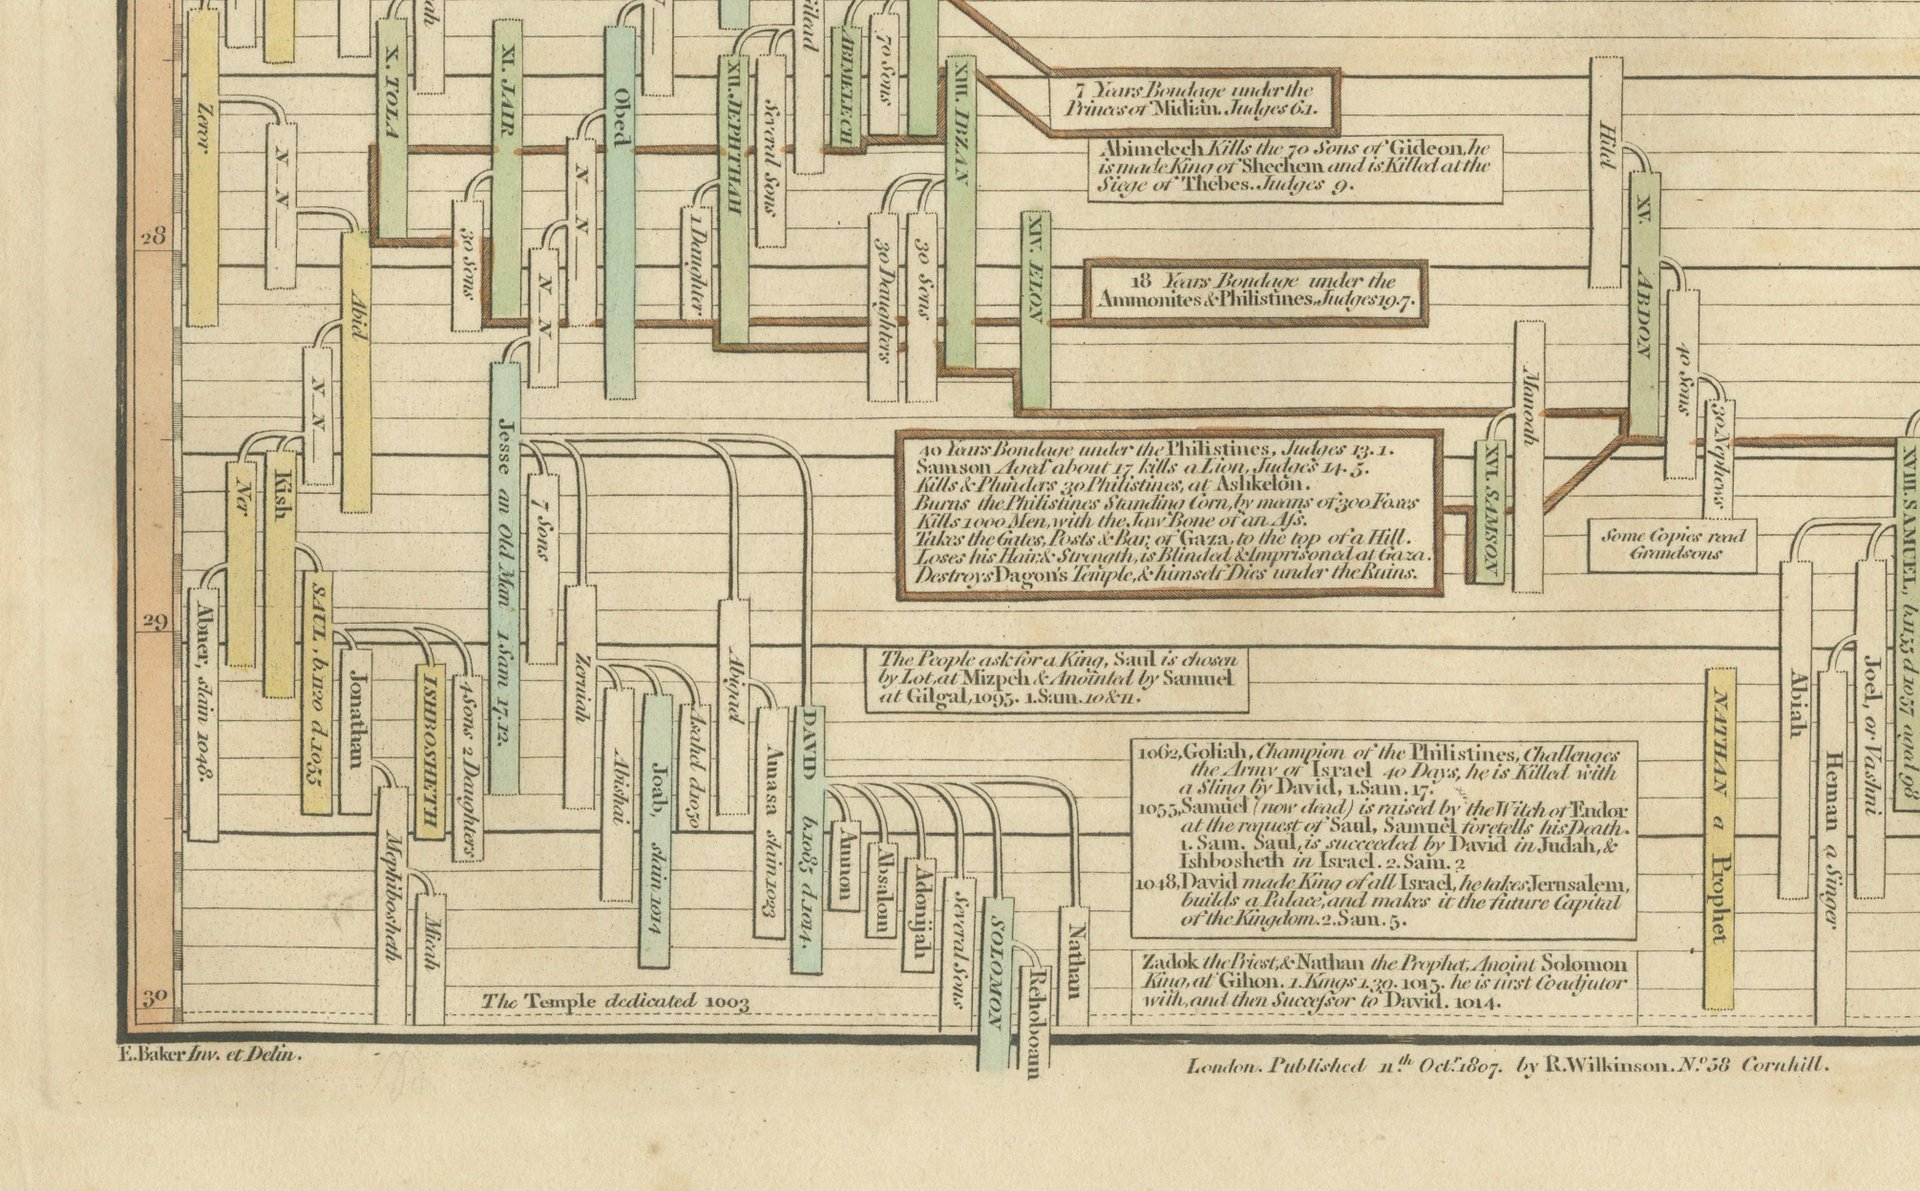 Zeror
N__N__
X. TOLA
XI. JAIR
Obed
N__N__
XII. JEPHTHAH
Several Sons
ilead
ABIMELECH
70 Sons
XIII. IBZAN
7 Years Bondage under the
Princes of Midian. Judges 6.1.
Abimelech Kills the 70 Sons of Gideon, he
is made King of Shechem and is Killed at the
Siege of Thebes. Judges 9.
Hilel
XV. ABDON
28
Abiel
30 Sons
N__N__
1 Daughter
30 Daughters
30 Sons
XIV. ELON
18 Years Bondage under the
Ammonites & Philistines, Judges 19.7.
40 Sons
30 Nephews
Manoah
N__N__
Ner
Kish
Jesse an Old Man 1. Sam 17.12.
7 Sons
40 Years Bondage under the Philistines, Judges 13.1.
Samson Aged about 17 kills a Lion, Judges 14.5.
Kills & Plunders 30 Philistines, at Ashkelon.
Burns the Philistines Standing Corn, by means of 300 Foxes
Kills 1000 Men, with the Jaw Bone of an Ass.
Takes the Gates, Posts & Bar, of Gaza, to the top of a Hill.
Loses his Hair & Strength, is Blinded & Imprisoned at Gaza.
Destroys Dagon's Temple, & himself Dies under the Ruins.
XVI. SAMSON
Some Copies read
Grandsons
XVIII. SAMUEL, b.1155 d 1057 aged 98
29
Abner, slain 1048.
SAUL, b.1120 d.1055
Jonathan
ISHBOSHETH
4 Sons 2 Daughters
Zeruiah
Abigael
The People ask for a King, Saul is chosen
by Lot, at Mizpeh & Anointed by Samuel
at Gilgal, 1095. 1. Sam. 10 & 11.
Abishai
Joab, slain 1014
Asahel d 1050
Amasa slain 1023
DAVID b.1085 d.1014.
NATHAN a Prophet
Abiah
Heman a Singer
Joel, or Vashni
1062, Goliah, Champion of the Philistines, Challenges
the Army of Israel 40 Days, he is Killed with
a Sling by David, 1. Sam. 17.
1055, Samuel (now dead) is raised by the Witch of Endor
at the request of Saul, Samuel foretells his Death.
1. Sam. Saul, is succeeded by David in Judah, &
Ishbosheth in Israel. 2. Sam. 2
1048, David made King of all Israel, he takes Jerusalem,
builds a Palace, and makes it the future Capital
of the Kingdom. 2. Sam. 5.
Mephibosheth
Micah
Amnon
Absalom
Adonijah
Several Sons
SOLOMON
Rehoboam
Nathan
Zadok the Priest, & Nathan the Prophet, Anoint Solomon
King, at Gihon. 1. Kings 1.39. 1015. he is first Coadjutor
with, and then Successor to David. 1014.
30
The Temple dedicated 1003
E. Baker Inv. et Delin.
London. Published 11th Octr. 1807. by R. Wilkinson. No. 58 Cornhill.